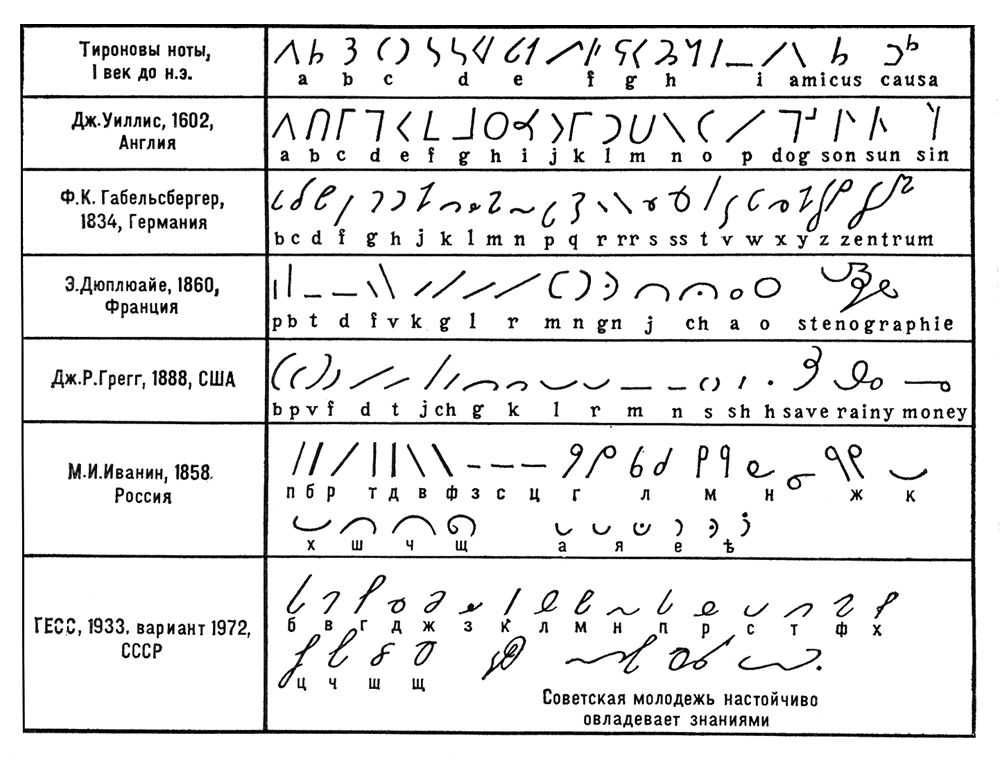 Тироновы ноты,
I век до н.э.
a b c d e f g h i amicus causa
Дж.Уиллис, 1602,
Англия
a b c d e f g h i j k l m n o p dog son sun sin
Ф.К. Габельсбергер,
1834, Германия
b c d f g h j k l m n p q r rr s ss t v w x y z zentrum
Э.Дюплюайе, 1860,
Франция
p b t d f v k g l r m n gn j ch a o stenographie
Дж.Р.Грегг, 1888, США
b p v f d t j ch g k l r m n s sh h save rainy money
М.И.Иванин, 1858.
Россия
п б р т д в ф з с ц г л м н ж к
х ш ч щ а я е ѣ
ГЕСС, 1933. вариант 1972,
СССР
б в г д ж з к л м н п р с т ф х
ц ч ш щ
Советская молодежь настойчиво
овладевает знаниями